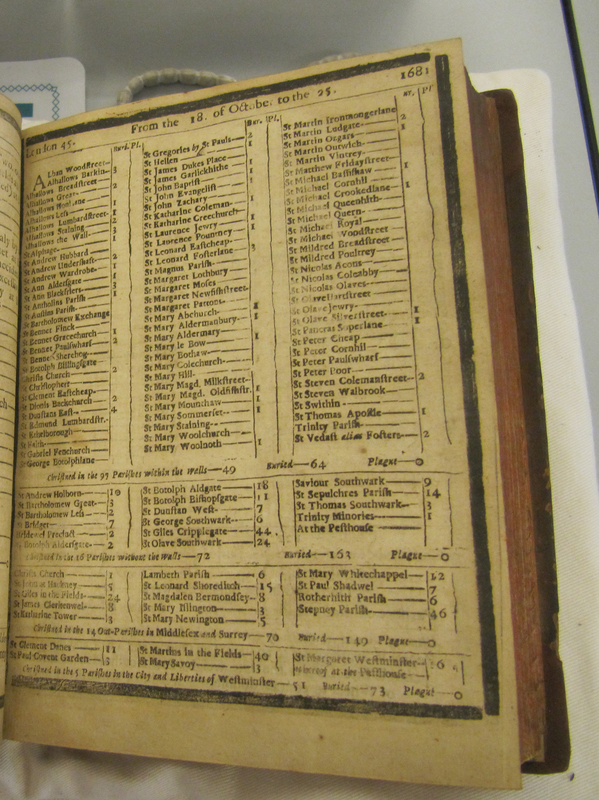 London 45. From the 18. of October to the 25. 1681
Bur. Pl.
Alban Woodstreet— 3
Alhallows Barkin—
Alhallows Breadstreet— 2
Alhallows Great—
Alhallows Honilane—
Alhallows Less— 1
Alhallows Lumbardstreet 2
Alhallows Staining— 3
Alhallows the Wall— 1
St Alphage—
St Andrew Hubbard—
St Andrew Undershaft—
St Andrew Wardrobe—
St Ann Aldersgate— 3
St Ann Blackfriers—
St Antholins Parish—
St Austins Parish—
St Bartholomew Exchange
St Bennet Finck—
St Bennet Gracechurch— 1
St Bennet Paulswharf— 2
St Bennet Sherehog—
St Botolph Billingsgate—
Christs Church— 2
St Christophers—
St Clement Eastcheap—
St Dionis Backchurch— 2
St Dunstans East— 4
St Edmund Lumbardstr.
St Ethelborough—
St Faith—
St Gabriel Fenchurch—
St George Botolphlane—
Bur. Pl.
St Gregories by St Pauls— 2
St Hellen—
St James Dukes Place— 1
St James Garlickhithe—
St John Baptist—
St John Evangelist—
St John Zachary—
St Katharine Coleman—
St Katharine Creechurch—
St Laurence Jewry—
St Laurence Pountney—
St Leonard Eastcheap—
St Leonard Fosterlane— 3
St Magnus Parish—
St Margaret Lothbury—
St Margaret Moses—
St Margaret Newfishstreet—
St Margaret Pattons—
St Mary Abchurch— 1
St Mary Aldermanbury— 1
St Mary Aldermary—
St Mary le Bow—
St Mary Bothaw—
St Mary Colechurch—
St Mary Hill—
St Mary Magd. Milkstreet—
St Mary Magd. Oldfishstr. 1
St Mary Mounthaw—
St Mary Sommerset— 1
St Mary Staining—
St Mary Woolchurch—
St Mary Woolnoth— 1
Bu. Pl.
St Martin Ironmongerlane
St Martin Ludgate— 2
St Martin Orgars—
St Martin Outwich—
St Martin Vintrey—
St Matthew Fridaystreet— 1
St Michael Bassishaw
St Michael Cornhil—
St Michael Crookedlane—
St Michael Queenhith—
St Michael Quern—
St Michael Royal—
St Michael Woodstreet
St Mildred Breadstreet—
St Mildred Poultrey—
St Nicolas Acons—
St Nicolas Coleabby—
St Nicolas Olaves—
St Olave Hartstreet—
St Olave Jewry—
St Olave Silverstreet— 1
St Pancras Soperlane— 1
St Peter Cheap—
St Peter Cornhil—
St Peter Paulswharf—
St Peter Poor—
St Steven Colemanstreet— 2
St Steven Walbrook—
St Swithin—
St Thomas Apostle— 1
Trinity Parish—
St Vedast alias Fosters— 2
Christned in the 97 Parishes within the Walls— 49 Buried— 64 Plague— 0
St Andrew Holborn— 10
St Bartholomew Great— 3
St Bartholomew Less— 2
St Bridget— 7
Bridewel Precinct— 2
St Botolph Aldersgate— 2
St Botolph Aldgate— 18
St Botolph Bishopsgate— 11
St Dunstan West— 7
St George Southwark— 6
St Giles Cripplegate— 44
St Olave Southwark— 24
Saviour Southwark— 9
St Sepulchres Parish— 14
St Thomas Southwark— 3
Trinity Minories— 1
At the Pesthouse—
Christned in the 16 Parishes without the Walls— 72 Buried— 163 Plague— 0
Christs Church— 1
St John at Hackney— 5
St Giles in the Fields— 24
St James Clerkenwel— 8
St Katharine Tower— 3
Lambeth Parish— 6
St Leonard Shoreditch— 15
St Magdalen Bermondsey— 8
St Mary Islington— 3
St Mary Newington— 5
St Mary Whitechappel— 12
St Paul Shadwel— 7
Rotherhith Parish— 6
Stepney Parish— 46
Christned in the 14 Out-Parishes in Middlesex and Surrey— 70 Buried— 149 Plague— 0
St Clement Danes— 11
St Paul Covent Garden— 3
St Martins in the Fields— 40
St Mary Savoy— 3
St Margaret Westminster— 16
whereof at the Pesthouse—
Christned in the 5 Parishes in the City and Liberties of Westminster— 51 Buried— 73 Plague— 0